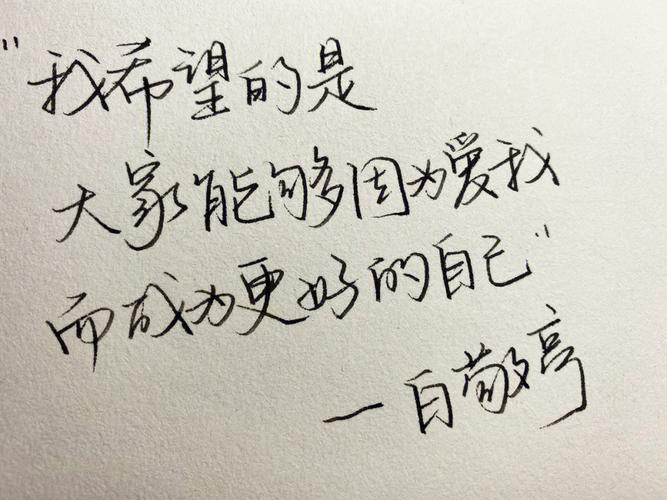 "我希望的是
大家能够因为爱我
而成为更好的自己"
—白敬亭